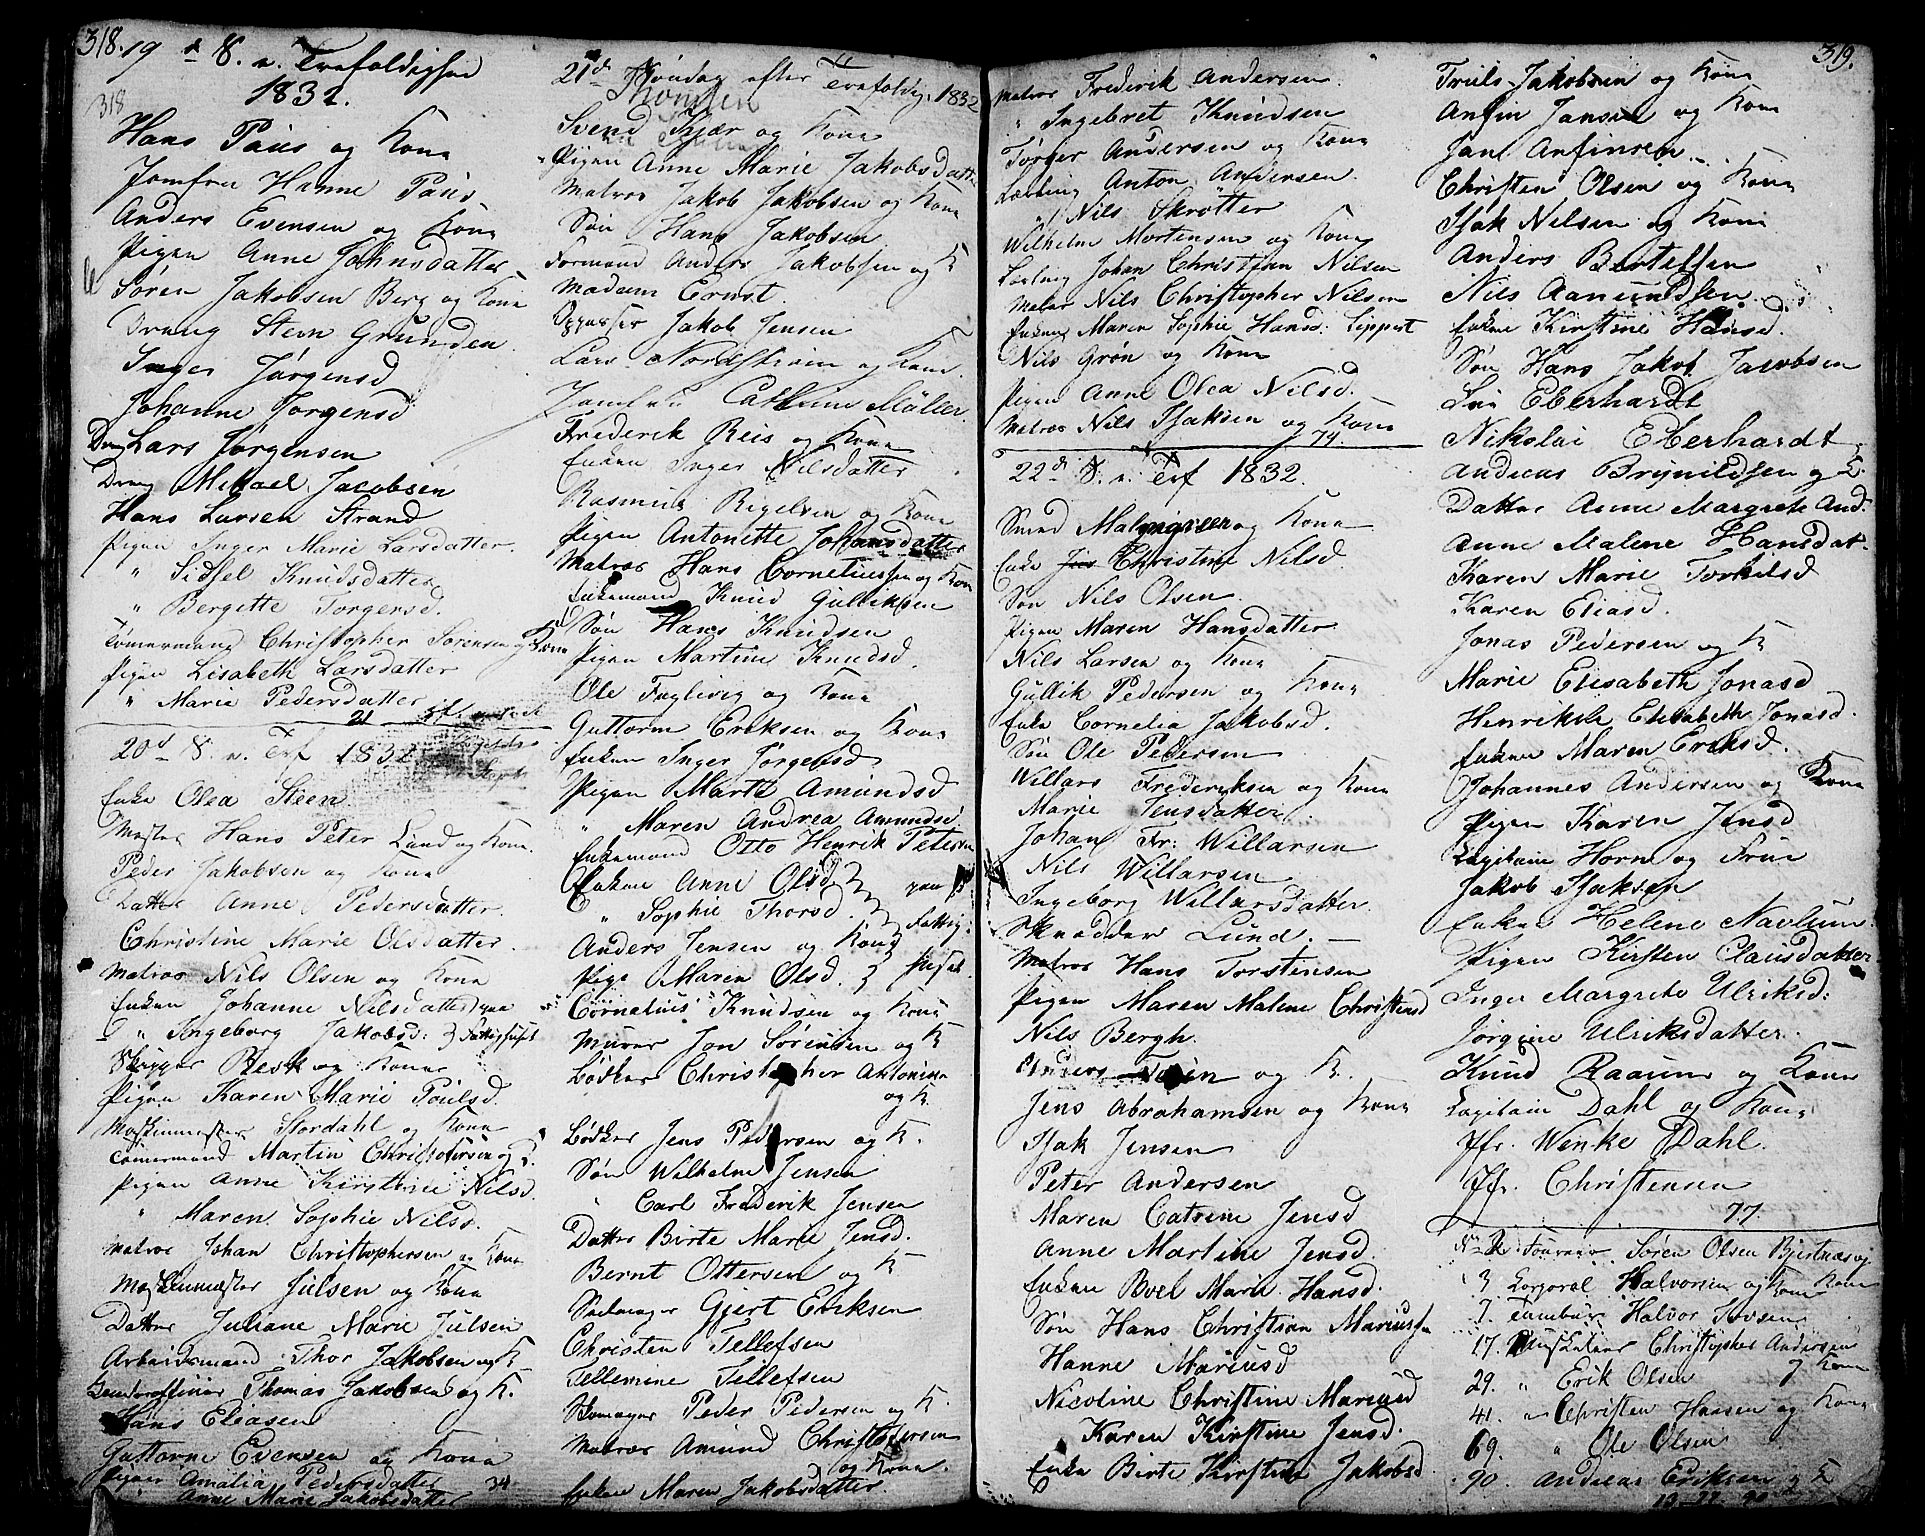 318.
19 d S. e. Trefoldighed
1832.
318
Hans Paus og Kone
Jomfru Hanne Paus
Anders Evensen og Kone
Pigen Anne Johnsdatter
Søren Jakobsen Berg og Kone
Dreng Sten Grunden
Inger Jørgensd
Johanne Jørgensd
Dreng Lars Jørgensen
Dreng Mikael Jacobsen
Hans Larsen Strand
Pigen Inger Marie Larsdatter.
" Sidsel Knudsdatter
" Bergette Torgersd.
Tømermand Christopher Sørensen og Kone
Pigen Lisabeth Larsdatter
" Marie Pedersdatter
21
20d S. e. Tref 1832
Enke Olea Steen
Mester Hans Peter Lund og Kone.
Peder Jakobsen og Kone
Datter Anne Pedersdatter.
Christine Marie Olsdatter.
Matros Nils Olsen og Kone
Enken Johanne Nilsdatter paa
" Ingeborg Jakobsd: Fattighuset
Skipper Beck og Kone
Pigen Karen Marie Poulsd.
Maskinmester Stordahl og Kone
Tømermand Martin Christofersen og K.
Pigen Anne Kirstine Nilsd.
" Maren Sophie Nilsd.
Matros Johan Christophersen og Kone
Maskinmester Julsen og Kone
Datter Juliane Marie Julsen
Arbeidsmand Thor Jakobsen og K
Thomas Jakobsen og K.
Hans Eliasen
Guttorme Evensen og Kone
Pigen Amalia Pedersdatter 34
Anne Marie Jakobsdatter
21d Søndag efter Trefoldig. 1832
Thomsen
Svend Kjær og Kone
Pigen Anne Marie Jakobsdatter
Matros Jakob Jakobsen og Kone
Søn Hans Jakobsen
Formand Anders Jakobsen og K
Madam Ernst.
Oppasser Jakob Jensen
Lars Nordstrøm og Kone.
Jomfru Cathrine Møller
Frederik Reis og Kone
Enken Inger Nilsdatter
Rasmus Bigelsen og Kone
Pigen Antonette Johansdatter
Matros Hans Corneliussen og Kone
Enkemand Knud Gulliksen
Søn Hans Knudsen
Pigen Martine Knudsd.
Ole Fuglevig og Kone
Guttorm Eriksen og Kone
Enken Inger Jørgensd
Pigen Marte Amundsd
" Maren Andrea Amundsd
Enkemand Otto Henrik Petersen
Enken Anne Olsd paa
" Sophie Thorsd. Fattig-
Anders Jensen og Kone
Pige Maren Olsd. huset.
Cornelius Knudsen og Kone
Murer Jon Sørensen og K
Bødker Christopher Antonsen
og K.
Bødker Jens Pedersen og K.
Søn Wilhelm Jensen
Carl Frederik Jensen
Datter Birte Marie Jensd.
Bernt Ottersen og K
Seilmager Gjert Eriksen
Christen Tellefsen
Tellemine Tellefsen
Peder Pedersen og K.
Matros Amund Christofersen
og Kone.
Enken Maren Jakobsdatter.
319.
Matros Frederik Andersen.
" Ingebret Knudsen
Torger Andersen og Kone
Lærling Anton Andersen.
" Nils Skrøtter
Wilhelm Mortensen og Kone
Lærling Johan Christian Nilsen
Matros Nils Christopher Nilsen
Enken Maren Sophie Hansd: Lippert
Nils Grøn og Kone
Pigen Anne Olea Nilsd.
Matros Nils Isaksen og Kone
74.
22d S. e. Tref 1832.
Smed Malmgreen og Kone
Enke Christine Nilsd.
Søn Nils Olsen.
Pigen Maren Hansdatter.
Nils Larsen og Kone
Gullik Pedersen og Kone
Enke Cornelia Jakobsd.
Søn Ole Pedersen
Willars Frederiksen og Kone
Marie Jensdatter
Johan Fr: Willarsen
Nils Willarsen
Ingeborg Willarsdatter.
Skredder Lund.
Matros Hans Torstensen
Pigen Maren Malene Christensd
Nils Bergh.
Anders og K.
Jens Abrahamsen og Kone
Isak Jensen
Peter Andersen
Maren Catrine Jensd
Anne Martine Jensd.
Enken Boel Marie Hansd.
Søn Hans Christian Mariussen
Hanne Mariusd
Nicoline Christine Mariusd
Karen Kirstine Jensd.
Enke Birte Kirstine Jakobsd
Truls Jakobsen og Kone
Anfin Jansen og Kone
Jan Anfinsen
Christen Olsen og Kone
Isak Nilsen og Kone
Anders Bertelsen
Nils Aanundsen
Enken Kirstine Hansd.
Søn Hans Jakob Jacobsen
Eberhardt
Nikolai Eberhardt
Andreas Brynildsen og K.
Datter Anne Margrete And.
Anne Malene Hansdat.
Karen Marie Torkelsd
Karen Eliasd.
Jonas Pedersen og K
Marie Elisabeth Jonasd
Henrikke Elisabeth Jonasd.
Enken Maren Eriksd.
Johannes Andersen og Kone
Pigen Karen Jensd
Capitain Horn og Frue
Jakob Isaksen
Enken Helene Navlum
Pigen Kirsten Clausdatter
Inger Margrete Ulriksd:
Jørgine Ulriksdatter.
Knud Raaum og Kone
Capitain Dahl og Kone
Jfr. Wenke Dahl.
Jfr. Christensen
77.
No 2. Fourer Søren Olsen Bjertnæs og
3 Corporal Halvorsen og Kone Kone
7. Tambur Halvor Iversen
17. Musketeer Christopher Andersen
29. " Erik Olsen og Kone
41. " Christen Hansen og Kone
69. " Ole Olsen
90. Andreas Eriksen og K